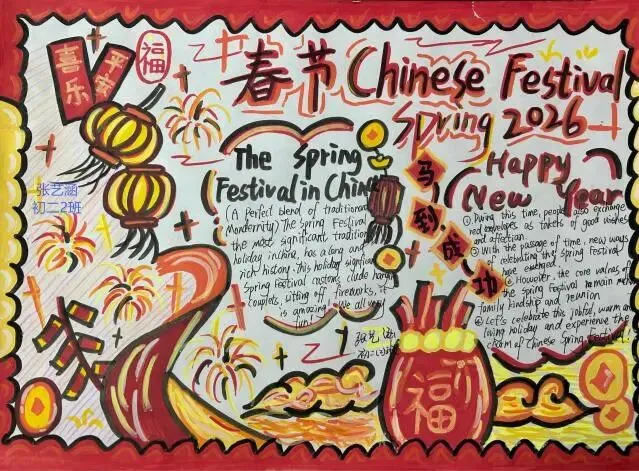 喜乐
平安
福
春节 Chinese Festival
Spring 2026
张艺涵
初二2班
The Spring
Festival in China
(A Perfect blend of traditional
Modernity) The Spring Festival
the most significant tradition
holiday in china, has a long and
rich history. this holiday significant
Spring Festival customs clude hanging
couplets, sitting off fireworks, it
is amazing. We all very
fun!
马到成功
Happy
New Year
① During this time, people also exchange
red envelopes as tokets of good wishes
and affection.
② With the passage of time, new ways
of celebrating the Spring Festival
have emerged.
③ However, the core values of
the Spring Festival remain
family kindship and reunion
④ Let's celebrate this joyful, warm and
living holiday and experience the
charm of Chinese Spring Festival.
福